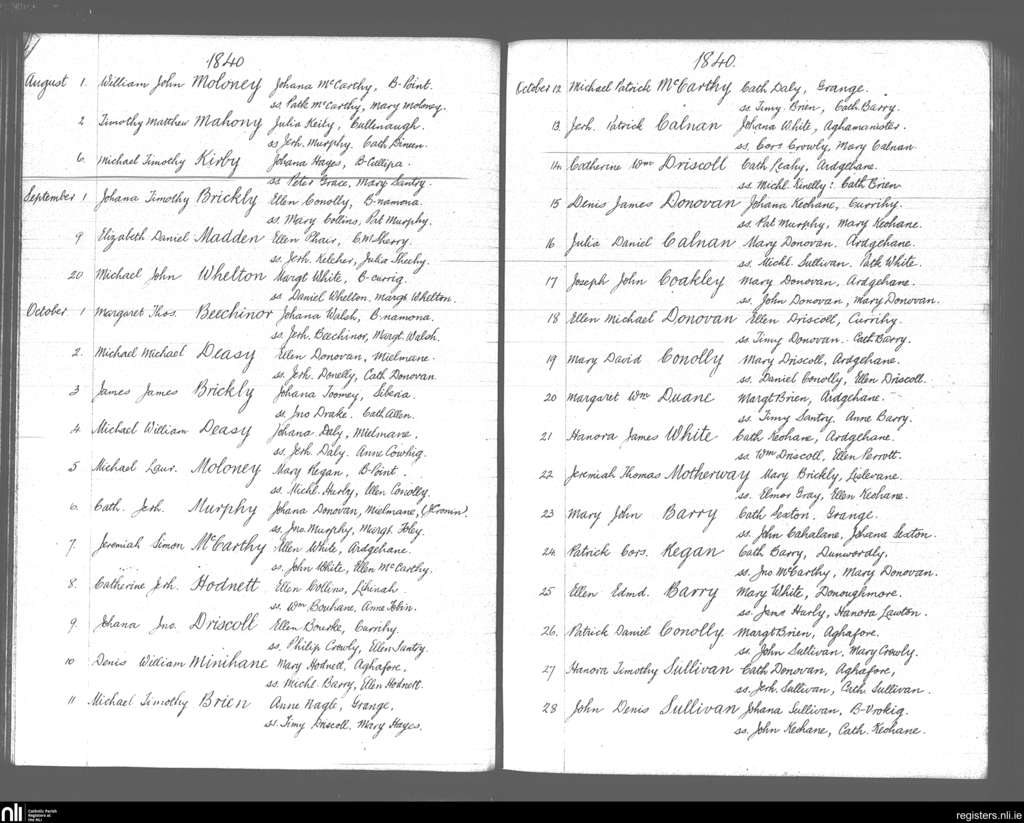 1840
August 1. William John Moloney Johana McCarthy, B-Point.
ss. Patk McCarthy, Mary Moloney.
2 Timothy Matthew Mahony Julia Keily, Cullenaugh.
ss Jerh. Murphy. Cath Dineen.
6. Michael Timothy Kirby Johana Hayes,
ss Peter Grace, Mary Santry.
September 1 Johana Timothy Brickly Ellen Conolly, B-namona.
ss Mary Collins, Pat Murphy.
9 Elizabeth Daniel Madden Ellen Phair, C.McSherry.
ss. Jerh. Keleher, Julia Sheehy.
20 Michael John Whelton Margt White, C-currig.
ss Daniel Whelton, Margt Whelton.
October 1 Margaret Thos. Beechinor Johana Walsh, B-namona.
ss. Jerh. Beechinor, Margt. Walsh.
2. Michael Michael Deasy Ellen Donovan, Mielmane.
ss. Jerh. Donelly, Cath Donovan.
3 James James Brickly Johana Toomey, Siberia.
ss. Jno Drake. Cath Allen.
4. Michael William Deasy Johana Daly, Mielmane.
ss. Jerh. Daly. Anne Cowhig.
5 Michael Laur. Moloney Mary Regan, B-Point.
ss. Michl. Hurly, Ellen Conolly.
6. Cath. Jerh. Murphy Johana Donovan, Mielmane, (Cronin).
ss. Jno. Murphy, Margt. Foley.
7. Jeremiah Simon McCarthy Ellen White, Ardgehane.
ss. John White, Ellen McCarthy.
8. Catherine Jerh. Hodnett Ellen Collins,
ss. Wm Bouhane, Anne Tobin.
9. Johana Jno. Driscoll Ellen Bourke, Currihy.
ss. Philip Crowly, Ellen Santry.
10 Denis William Minihane Mary Hodnett, Aghafore.
ss. Michl. Barry, Ellen Hodnett.
11 Michael Timothy Brien Anne Nagle, Grange.
ss. Timy Driscoll. Mary Hayes.
1840.
October 12 Michael Patrick McCarthy Cath Daly, Grange.
ss Timy Brien, Cath Barry.
13. Jerh. Patrick Calnan Johana White, Aghamanister.
ss. Cors Crowly, Mary Calnan.
14 Catherine Wm Driscoll Cath Leahy, Ardgehane.
ss Michl Knelly: Cath Brien
15 Denis James Donovan Johana Keohane, Currihy.
ss. Pat Murphy, Mary Keohane.
16 Julia Daniel Calnan Mary Donovan, Ardgehane.
ss. Michl. Sullivan. Patk White.
17 Joseph John Coakley Mary Donovan, Ardgehane.
ss. John Donovan, Mary Donovan.
18 Ellen Michael Donovan Ellen Driscoll, Currihy.
ss Timy Donovan. Cath Barry.
19 Mary David Conolly Mary Driscoll, Ardgehane.
ss. Daniel Conolly, Ellen Driscoll.
20 Margaret Wm Duane Margt Brien, Ardgehane.
ss. Timy Santry, Anne Barry.
21 Hanora James White Cath Keohane, Ardgehane.
ss. Wm Driscoll, Ellen Perrott.
22 Jeremiah Thomas Motherway Mary Brickly, Lislevane.
ss. Elmor Gray, Ellen Keohane.
23 Mary John Barry Cath Sexton, Grange.
ss. John Cahalane, Johana Sexton.
24 Patrick Cors. Regan Cath Barry, Dunwordly.
ss. Jno McCarthy, Mary Donovan.
25 Ellen Edmd. Barry Mary White, Donoughmore.
ss. Jens Hurly, Hanora Lawton.
26. Patrick Daniel Conolly Margt Brien, Aghafore.
ss. John Sullivan, Mary Crowly.
27 Hanora Timothy Sullivan Cath Donovan, Aghafore,
ss. Jerh. Sullivan, Cath. Sullivan.
28 John Denis Sullivan Johana Sullivan, B-Vrokig.
ss. John Keohane, Cath. Keohane.
nli Catholic Parish Registers at the NLI
registers.nli.ie